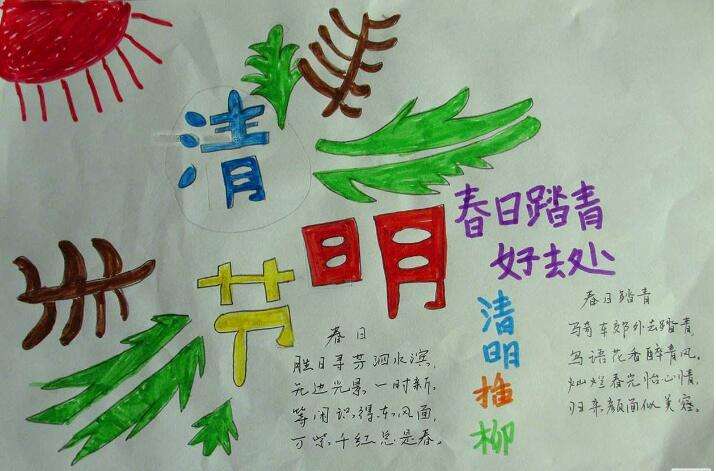 清
明
节
春日踏青
好去处
清明插柳
春日
胜日寻芳泗水滨，
无边光景一时新，
等闲识得东风面，
万紫千红总是春。
春日踏青
骑车郊外去踏青
鸟语花香醉青风，
灿烂春光怡心情，
归来颜面似美容。